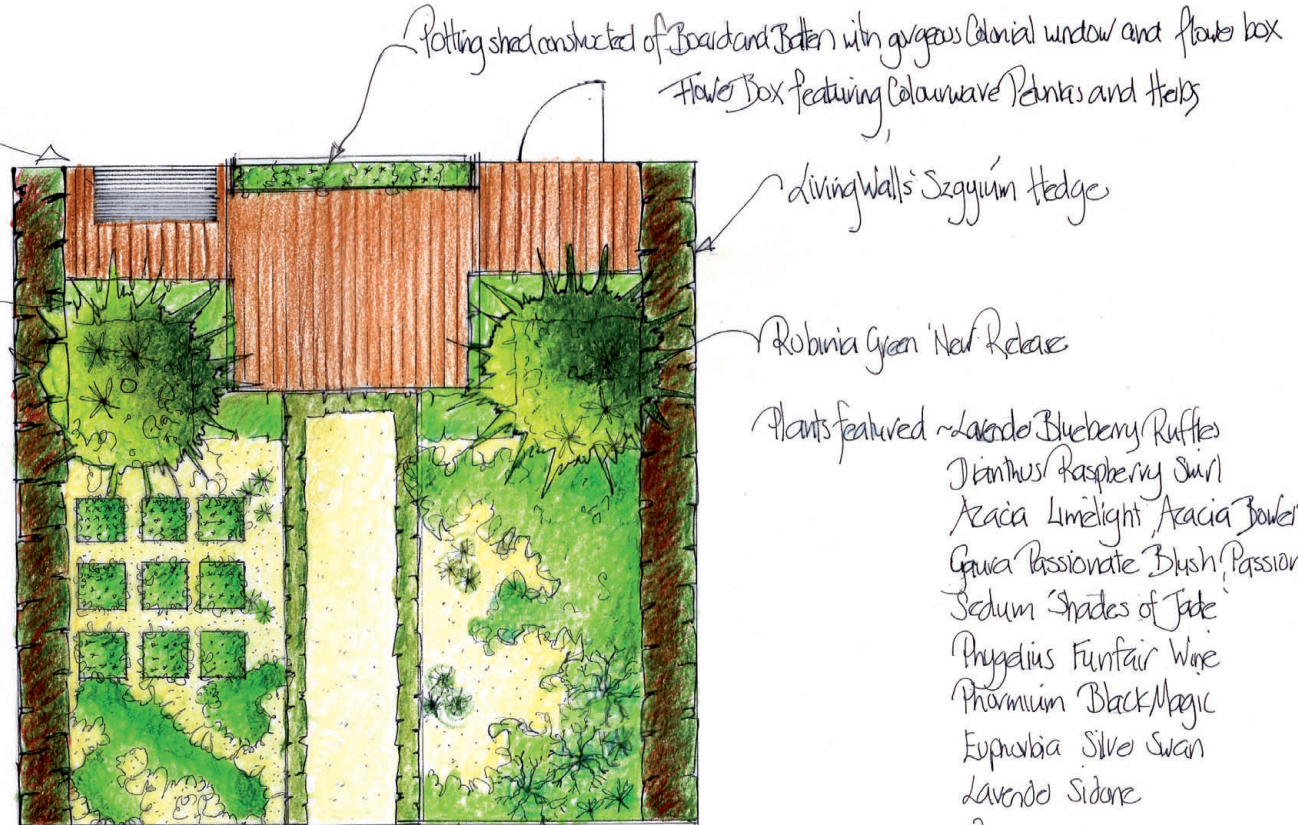 Potting shed constructed of Board and Batten with gorgeous Colonial window and flower box
Flower Box featuring Colourwave Petunias and Herbs
Living Walls Szgyium Hedge
Robinia Green New Release
Plants featured ~ Lavender Blueberry Ruffles
Dianthus Raspberry Swirl
Acacia Limelight, Acacia Bower
Gaura Passionate Blush, Passion
Sedum 'Shades of Jade'
Phygelius Funfair Wine
Phormium Black Magic
Euphorbia Silver Swan
Lavender Sidonie